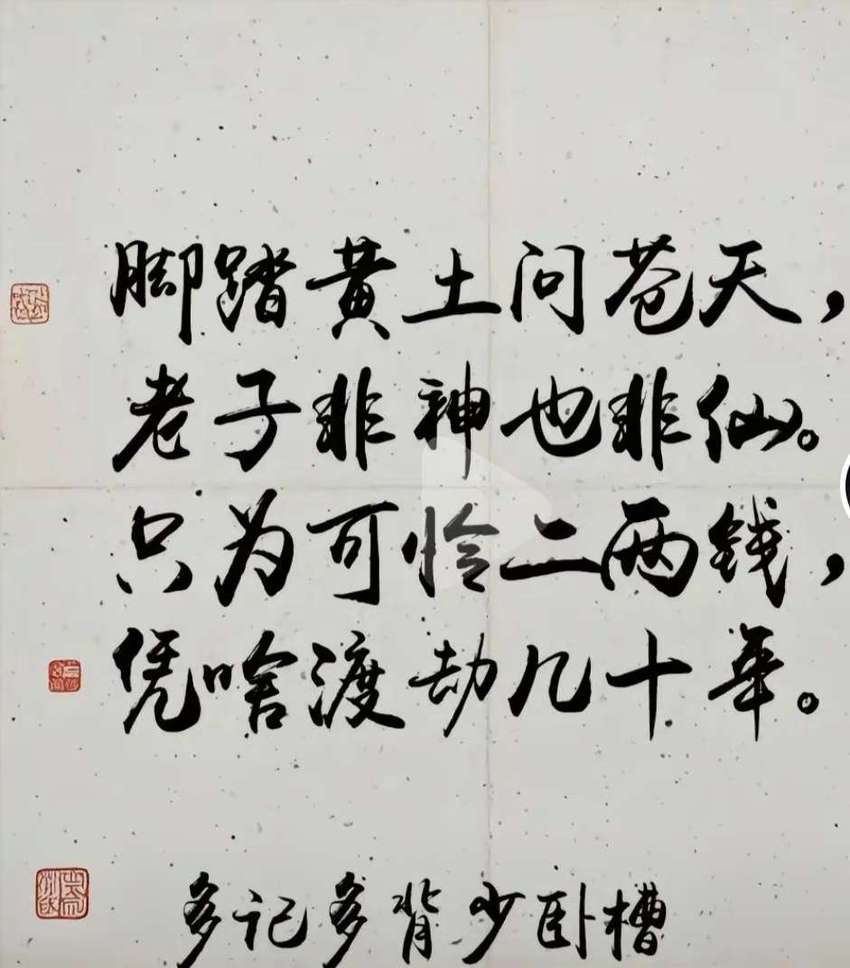 脚踏黄土问苍天，
老子非神也非仙。
只为可怜二两钱，
凭啥渡劫几十年。
多记多背少卧槽